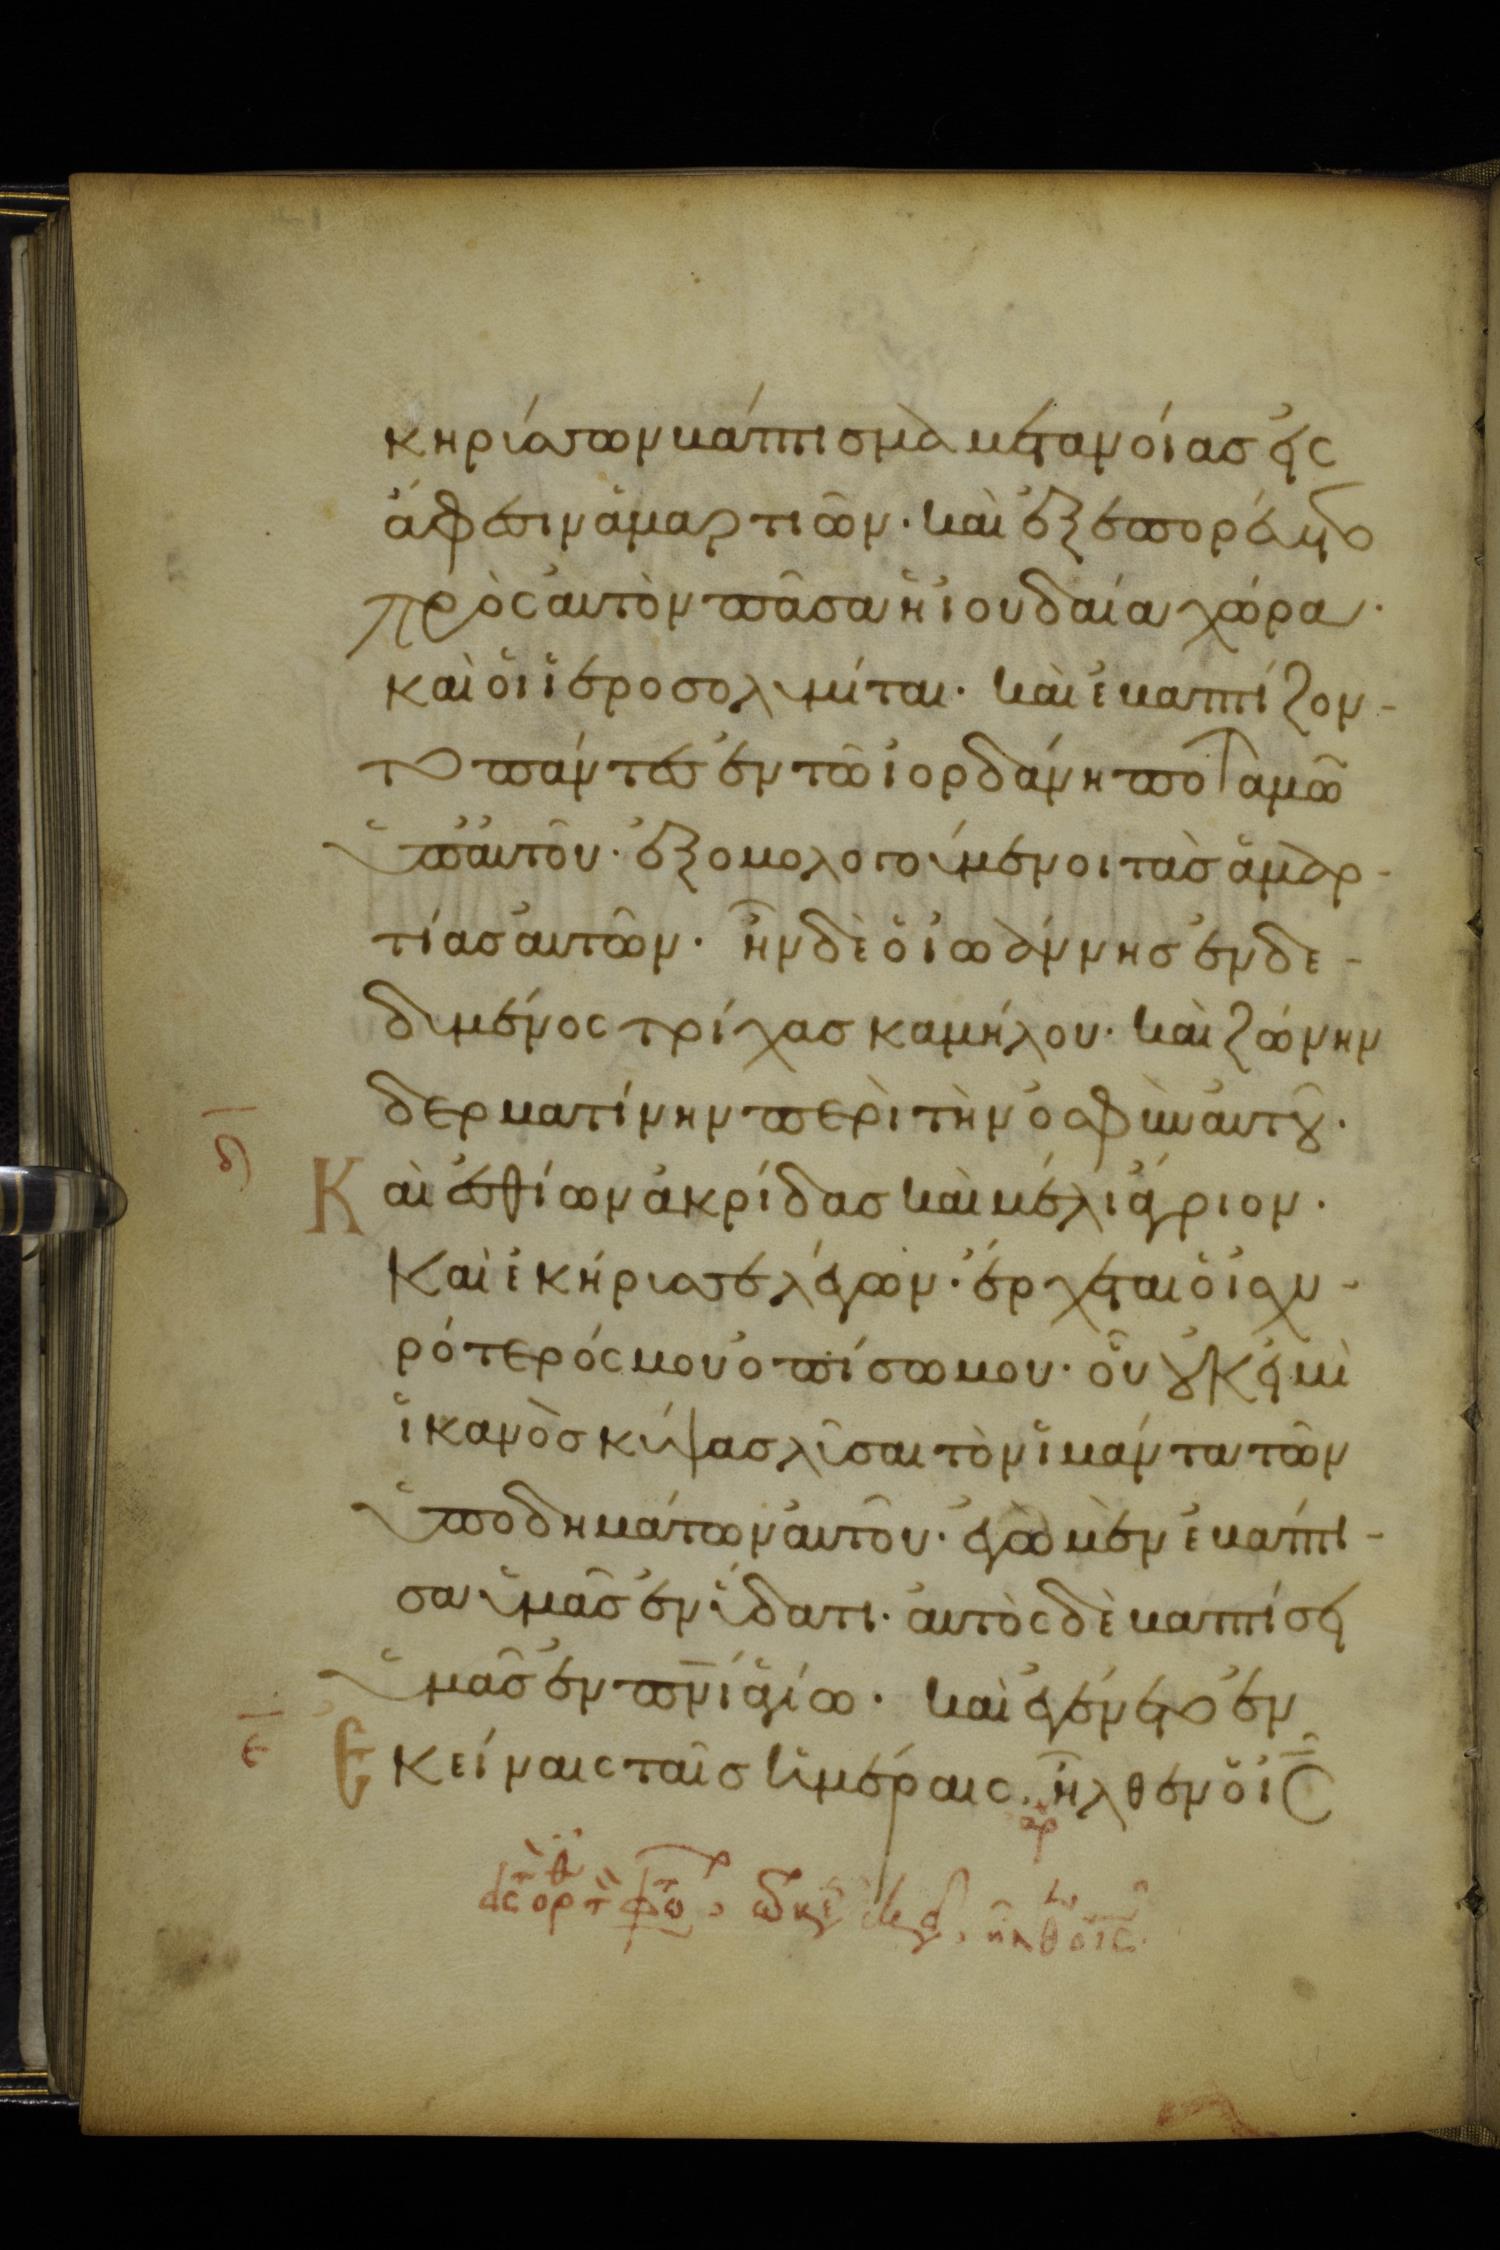 κηρύσσων βάπτισμα μετανοίας εἰς
ἄφεσιν ἁμαρτιῶν· καὶ ἐξεπορεύετο
πρὸς αὐτὸν πᾶσα ἡ ἰουδαία χώρα·
καὶ οἱ ἱεροσολυμίται· καὶ ἐβαπτίζον-
το πάντες ἐν τῶ ἰορδάνη ποταμῶ
ὑπ' αὐτοῦ· ἐξομολογούμενοι τὰς ἁμαρ-
τίας αὐτῶν· ἦν δὲ ὁ ἰωάννης ἐνδε-
δυμένος τρίχας καμήλου· καὶ ζώνην
δερματίνην περὶ τὴν ὀσφὺν αὐτοῦ·
δ
Καὶ ἐσθίων ἀκρίδας καὶ μέλι ἄγριον·
Καὶ ἐκήρυσσε λέγων· ἔρχεται ὁ ἰσχυ-
ρότερός μου ὀπίσω μου· οὗ οὐκ εἰμὶ
ἱκανὸς κύψας λῦσαι τὸν ἱμάντα τῶν
ὑποδημάτων αὐτοῦ· ἐγὼ μὲν ἐβάπτι-
σα ὑμᾶς ἐν ὕδατι· αὐτὸς δὲ βαπτίσει
ὑμᾶς ἐν πνι ἁγίω· καὶ ἐγένετο ἐν
ε
Ἐκείναις ταῖς ἡμέραις. ἦλθεν ὁ ις
αρ